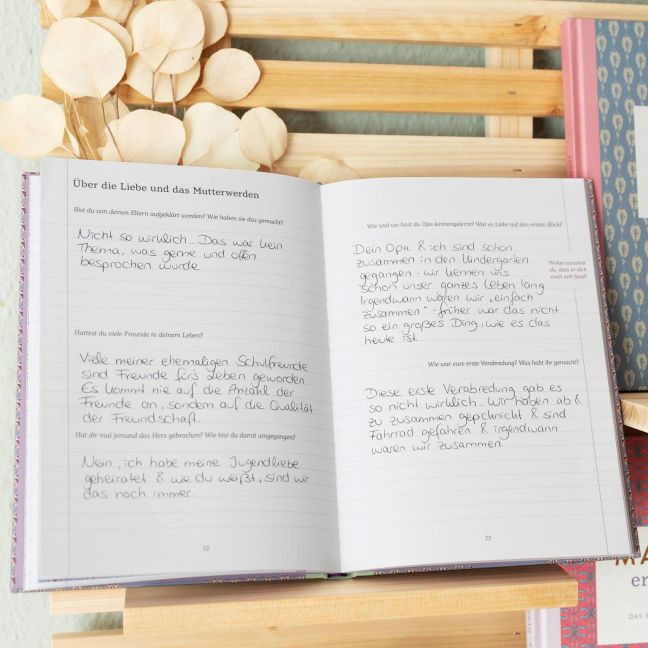 Über die Liebe und das Mutterwerden
Bist du von deinen Eltern aufgeklärt worden? Wie haben sie das gemacht?
Nicht so wirklich... Das war kein
Thema, was gerne und offen
besprochen wurde.
Hattest du viele Freunde in deinem Leben?
Viele meiner ehemaligen Schulfreunde
sind Freunde fürs Leben geworden.
Es kommt nie auf die Anzahl der
Freunde an, sondern auf die Qualität
der Freundschaft.
Hat dir mal jemand das Herz gebrochen? Wie bist du damit umgegangen?
Nein, ich habe meine Jugendliebe
geheiratet & wie du weißt, sind wir
das noch immer.
72
Wie und wo hast du Opa kennengelernt? War es Liebe auf den ersten Blick?
Dein Opa & ich sind schon
zusammen in den Kindergarten
gegangen - wir kennen uns
schon unser ganzes Leben lang.
Irgendwann waren wir „einfach
zusammen" - früher war das nicht
so ein großes Ding, wie es das
heute ist.
Woher wusstest
du, dass er dich
auch nett fand?
Wie war eure erste Verabredung? Was habt ihr gemacht?
Diese erste Verabredung gab es
so nicht wirklich. Wir haben ab &
zu zusammen gepicknickt & sind
Fahrrad gefahren & irgendwann
waren wir zusammen.
73
MA
er
DAS E